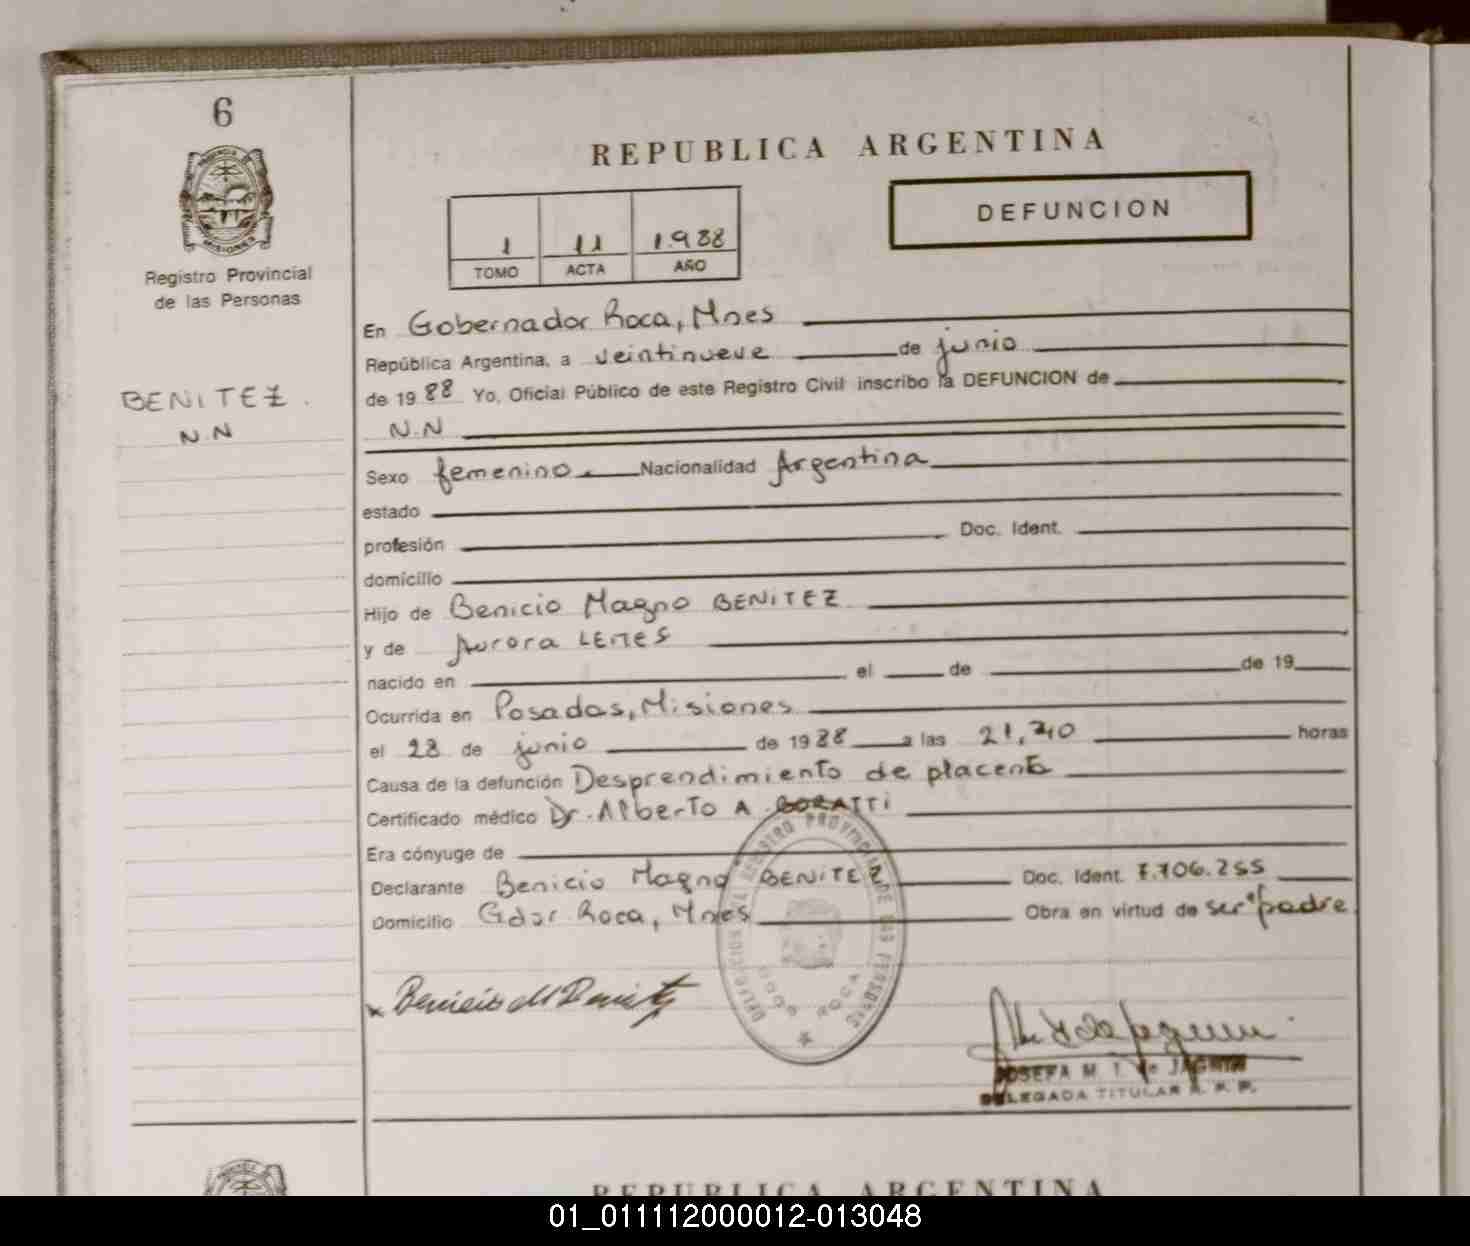 6
Registro Provincial
de las Personas
BENITEZ.
N.N
REPUBLICA ARGENTINA
1 11 1.988
TOMO ACTA AÑO
DEFUNCION
En Gobernador Roca, Mnes
República Argentina, a veintinueve de junio
de 1988 Yo, Oficial Público de este Registro Civil inscribo la DEFUNCION de
N.N
Sexo femenino. Nacionalidad Argentina
estado
profesión Doc. Ident.
domicilio
Hijo de Benicio Magno BENITEZ
y de Aurora LEMES
nacido en el de de 19
Ocurrida en Posadas, Misiones
el 28 de junio de 1988 a las horas
Causa de la defunción Desprendimiento de placenta
Certificado médico Dr. Alberto A.
Era cónyuge de
Declarante Benicio Magno BENITEZ Doc. Ident. 7.706.255
Domicilio Gdor Roca, Mnes Obra en virtud de ser padre
JOSEFA M. T. de
DELEGADA TITULAR R. P. P.
REPUBLICA ARGENTINA
01_011112000012-013048